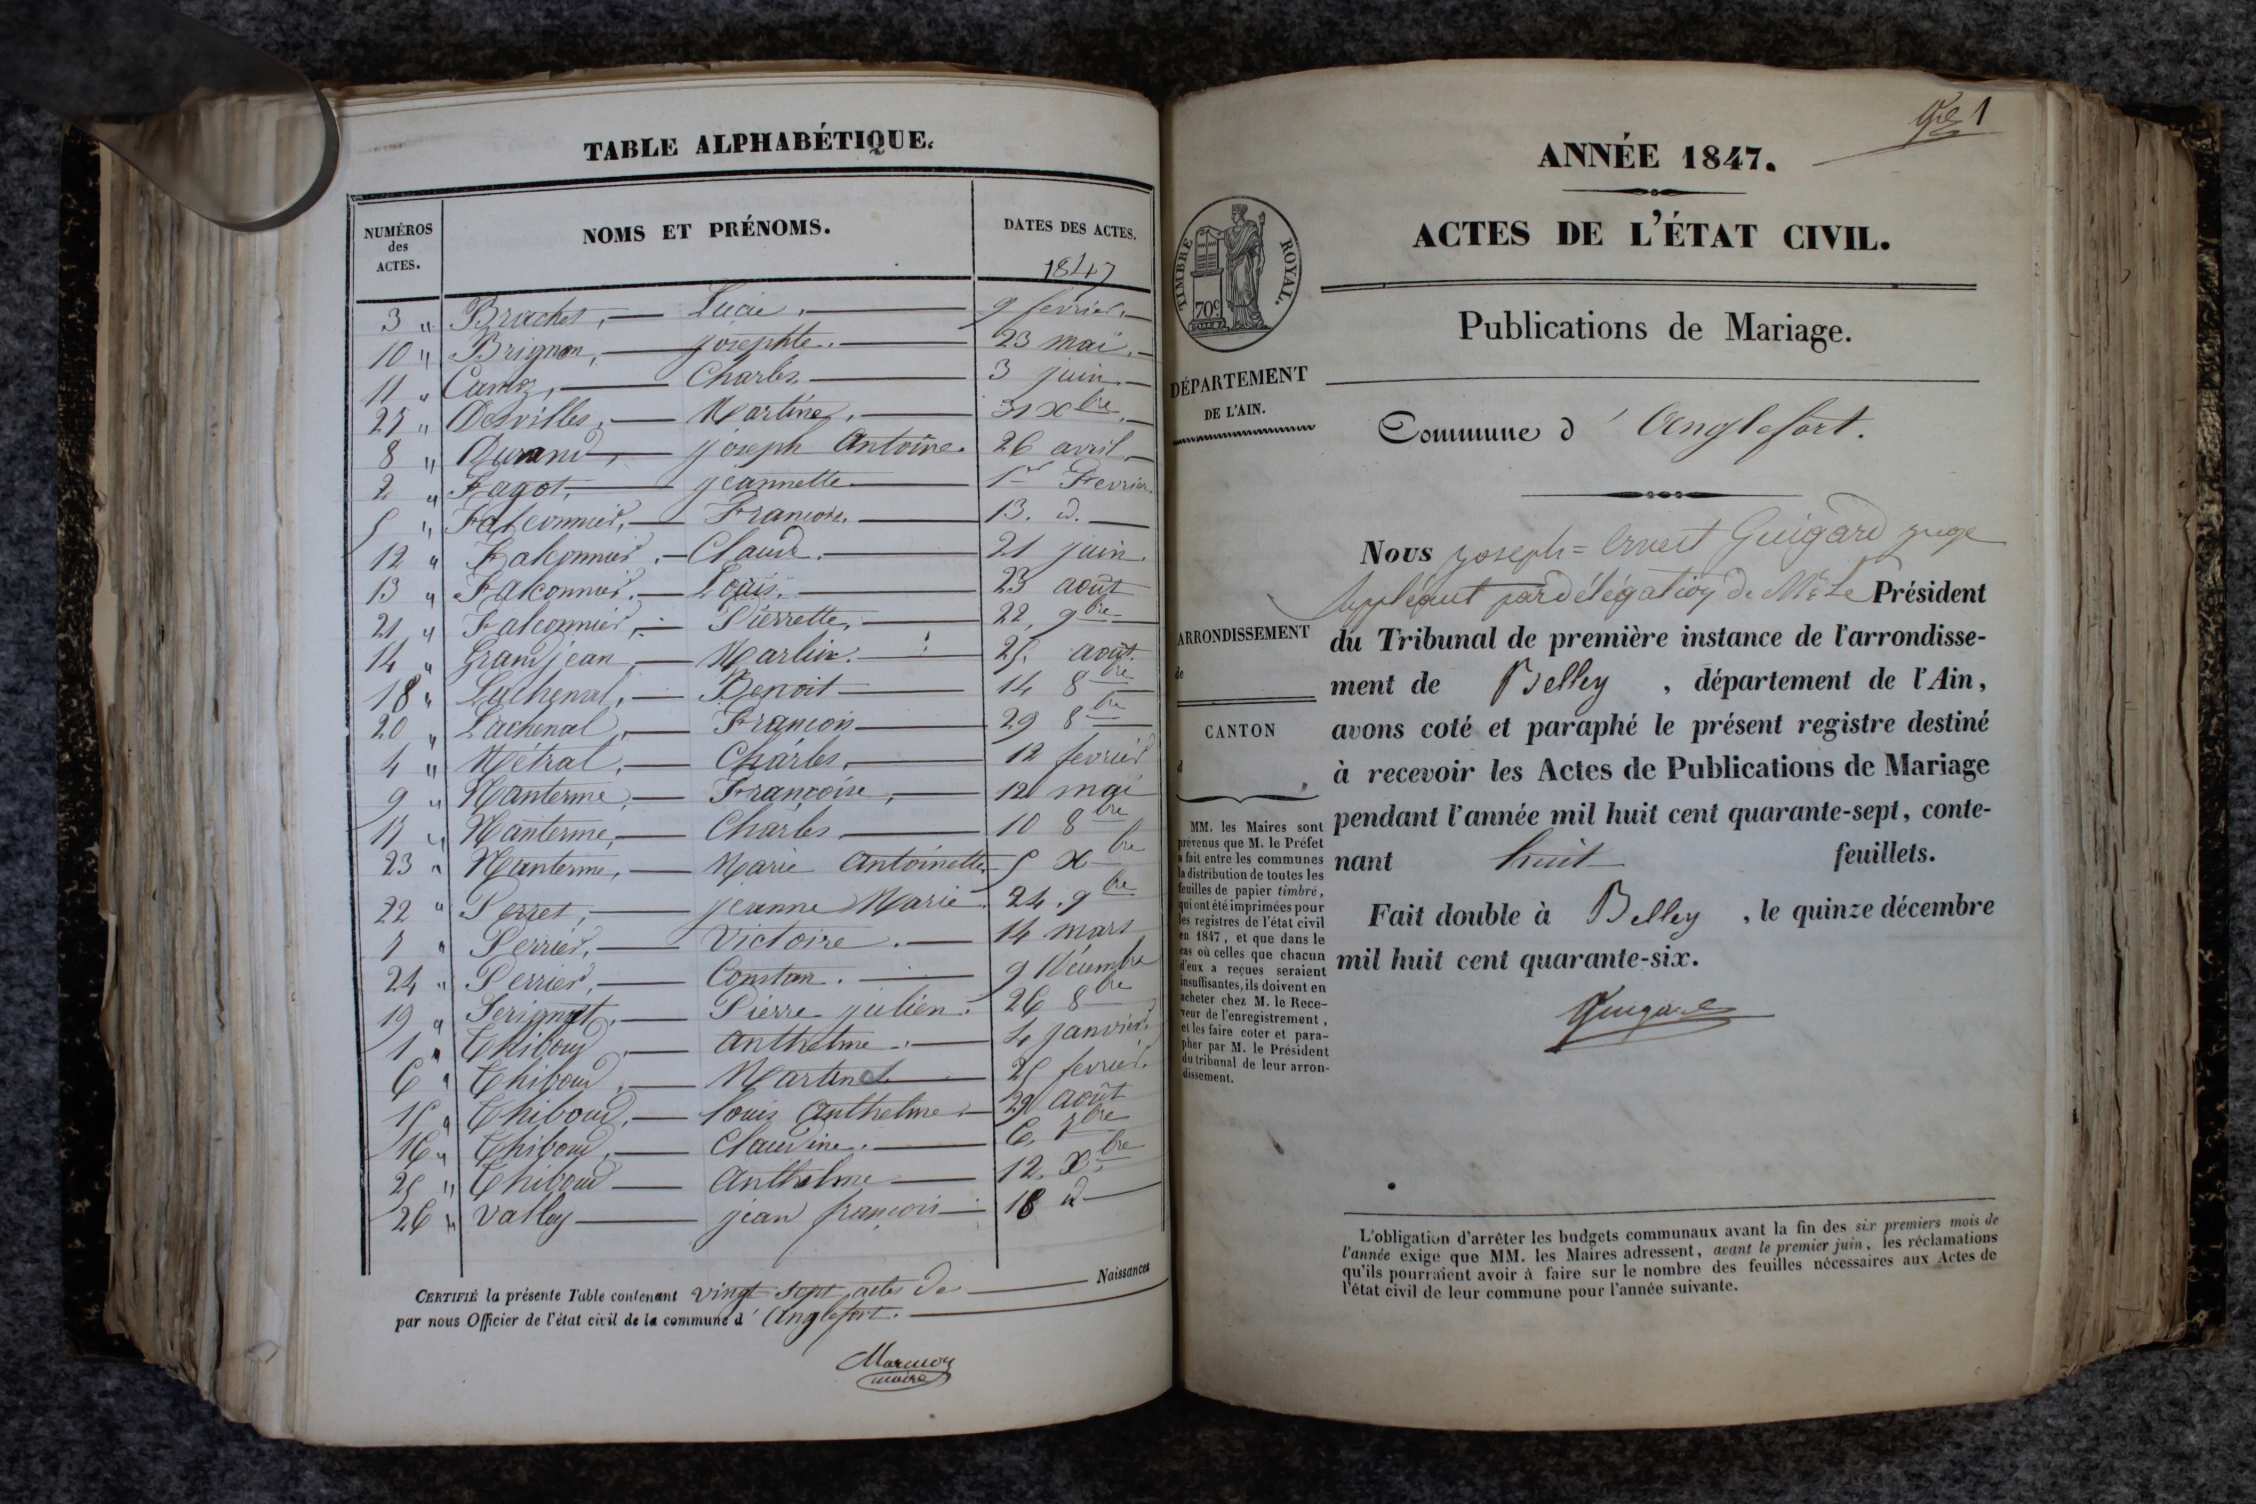 TABLE ALPHABÉTIQUE.
NUMÉROS des ACTES.
NOMS ET PRÉNOMS.
DATES DES ACTES.
1847
3 " Brachet, — Lucie. — 9 fevrier. —
10 " Brignon, — josephte. — 23 mai. —
11 " — Charles — 3 juin. —
27 " Desvilles, — Martine, — 31 Xbre. —
8 " Durand, — joseph Antoine. 26 avril —
2 " Fagot, — jeannette — 1er Fevrier.
5 " Falconnier, — François. — 13. d. —
12 " Falconnier. — Claude. — 21 juin.
13 " Falconnier. — Louis. — 23 août
21 " Falconnier, — Pierrette, — 22, 9bre —
14 " Grandjean, — Martin. — 25. août.
18 " Lachenal, — Benoit — 14 8bre
20 " Lachenal, — François — 29 8bre
4 " Métral, — Charles, — 12 fevrier
9 " Nanterme, — Françoise, — 12 mai
17 " Nanterme, — Charles — 10 8bre
23 " Nanterme, — Marie Antoinette, 5 Xbre
22 " Perret, — jeanne Marie. 24. 9bre
7 " Perrier, — Victoire. — 14 mars
24 " Perrier, — Constan. — 9 Décembre
19 " — Pierre julien. 26 8bre
1 " Thiboud, — Anthelme. — 4 janvier.
6 " Thiboud, — Martin — 25 fevrier.
15 " Thiboud, — Louis Anthelme — 29 août
16 " Thiboud, — Claudine. — 6. 7bre
25 " Thiboud — Anthelme — 12. Xbre
26 " Vallay — jean françois — 18 d —
CERTIFIÉ la présente Table contenant vingt sept actes de — Naissances
par nous Officier de l'état civil de la commune d' Anglefort. —
maire
1
ANNÉE 1847.
ACTES DE L'ÉTAT CIVIL.
TIMBRE ROYAL.
70c
Publications de Mariage.
DÉPARTEMENT
DE L'AIN.
Commune d' Anglefort.
Nous joseph = Ernest Guigard juge
suppléant par délégation de Mr. Le Président
ARRONDISSEMENT
de
du Tribunal de première instance de l'arrondisse-
ment de Belley , département de l'Ain,
CANTON
d
avons coté et paraphé le présent registre destiné
à recevoir les Actes de Publications de Mariage
pendant l'année mil huit cent quarante-sept, conte-
nant huit feuillets.
Fait double à Belley , le quinze décembre
mil huit cent quarante-six.
Guigard
MM. les Maires sont
prévenus que M. le Préfet
a fait entre les communes
la distribution de toutes les
feuilles de papier timbré,
qui ont été imprimées pour
les registres de l'état civil
en 1847, et que dans le
cas où celles que chacun
d'eux a reçues seraient
insuffisantes, ils doivent en
acheter chez M. le Rece-
veur de l'enregistrement,
et les faire coter et para-
pher par M. le Président
du tribunal de leur arron-
dissement.
L'obligation d'arrêter les budgets communaux avant la fin des six premiers mois de
l'année exige que MM. les Maires adressent, avant le premier juin, les réclamations
qu'ils pourraient avoir à faire sur le nombre des feuilles nécessaires aux Actes de
l'état civil de leur commune pour l'année suivante.